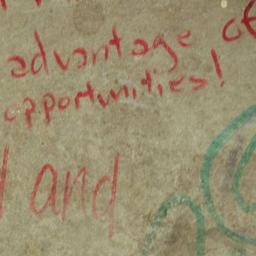 advantage of
opportunities!
and